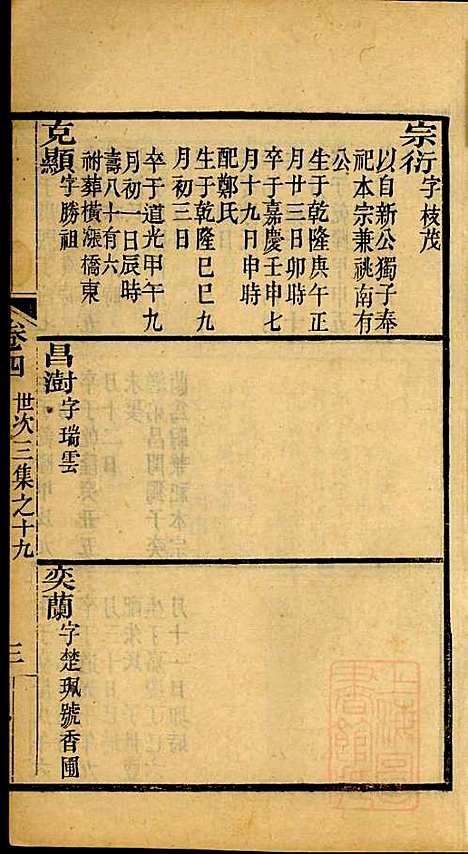 宗衍字枝茂
以自新公獨子奉
祀本宗兼祧南有
公
生于乾隆庚午正
月廿三日卯時
卒于嘉慶壬申七
月十九日申時
配鄭氏
生于乾隆己巳九
月初三日
卒于道光甲午九
月初一日辰時
壽八十有六
祔葬橫漲橋東
克顯字勝祖
昌澍字瑞雲
奕蘭字楚珮號香圃
卷四
世次三集之十九
三